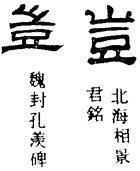 豈
北海相景
君銘
豈
魏封孔羨碑